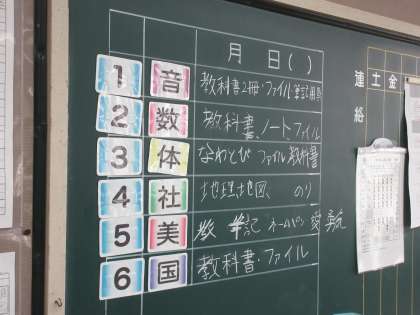 月 日( )
1 音 教科書2冊・ファイル 筆記用具
2 数 教科書、ノート ファイル
3 体 なわとび ファイル 教科書
4 社 地理 地図 のり
5 美 筆記 ネームペン
6 国 教科書・ファイル
連絡
土
金